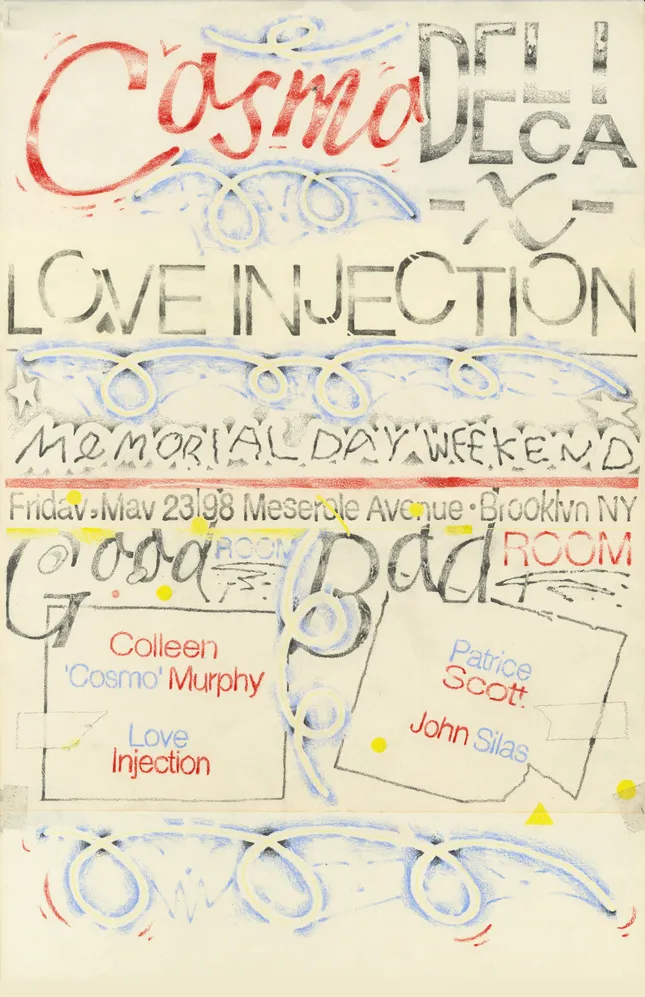 Cosmo DELI
DECA
-X-
LOVE INJECTION
MEMORIAL DAY WEEKEND
Friday, May 23|98 Meserole Avenue • Brooklyn NY
Good ROOM Bad ROOM
Colleen
'Cosmo' Murphy
Love
Injection
Patrice
Scott
John Silas